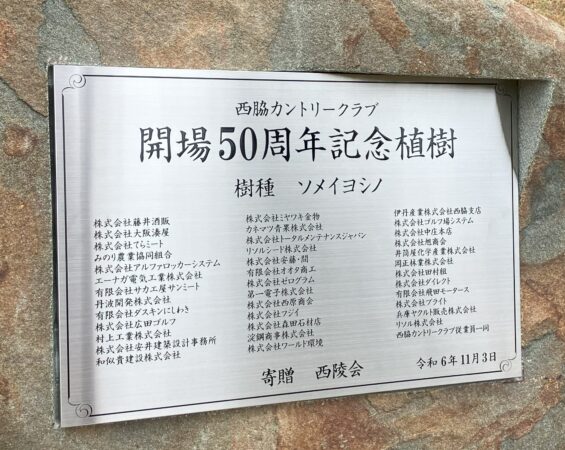 西脇カントリークラブ
開場50周年記念植樹
樹種 ソメイヨシノ
株式会社藤井酒販
株式会社大阪湊屋
株式会社てらミート
みのり農業協同組合
株式会社アルファロッカーシステム
エーナガ電気工業株式会社
有限会社サカエ屋サンミート
丹波開発株式会社
有限会社ダスキンにしわき
株式会社広田ゴルフ
村上工業株式会社
株式会社安井建築設計事務所
和似貴建設株式会社
株式会社ミヤワキ金物
カネマツ青果株式会社
株式会社トータルメンテナンスジャパン
リソルシード株式会社
株式会社安藤・間
有限会社オオタ商工
株式会社ゼログラム
第一電子株式会社
株式会社西原商会
株式会社フジイ
株式会社森田石材店
淀鋼商事株式会社
株式会社ワールド環境
伊丹産業株式会社西脇支店
株式会社ゴルフ場システム
株式会社中庄本店
株式会社旭商会
井筒屋化学産業株式会社
岡正林業株式会社
株式会社田村組
株式会社ダイレクト
有限会社飛田モータース
株式会社ブライト
兵庫ヤクルト販売株式会社
リソル株式会社
西脇カントリークラブ従業員一同
寄贈 西陵会
令和6年11月3日